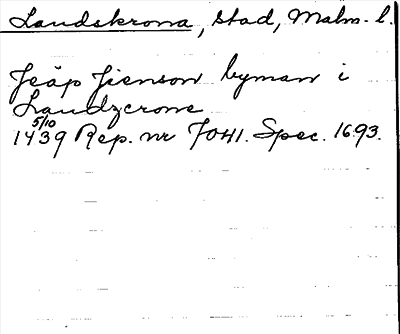 Landskrona, stad, Malm. l.
Jeäp Jienson byman i
Landzcrone
5/10
1439 Rep. nr 7041. Spec. 1693.